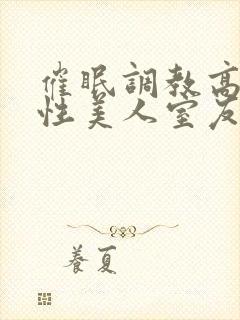 催眠調教高
性美人室友
養夏